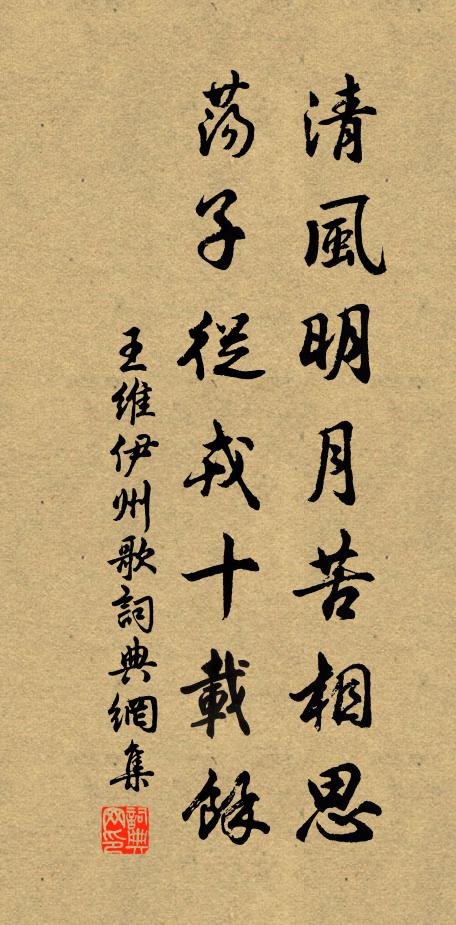 清風明月苦相思
蕩子從戎十載餘
王維伊州歌詞典網集
詞典網印